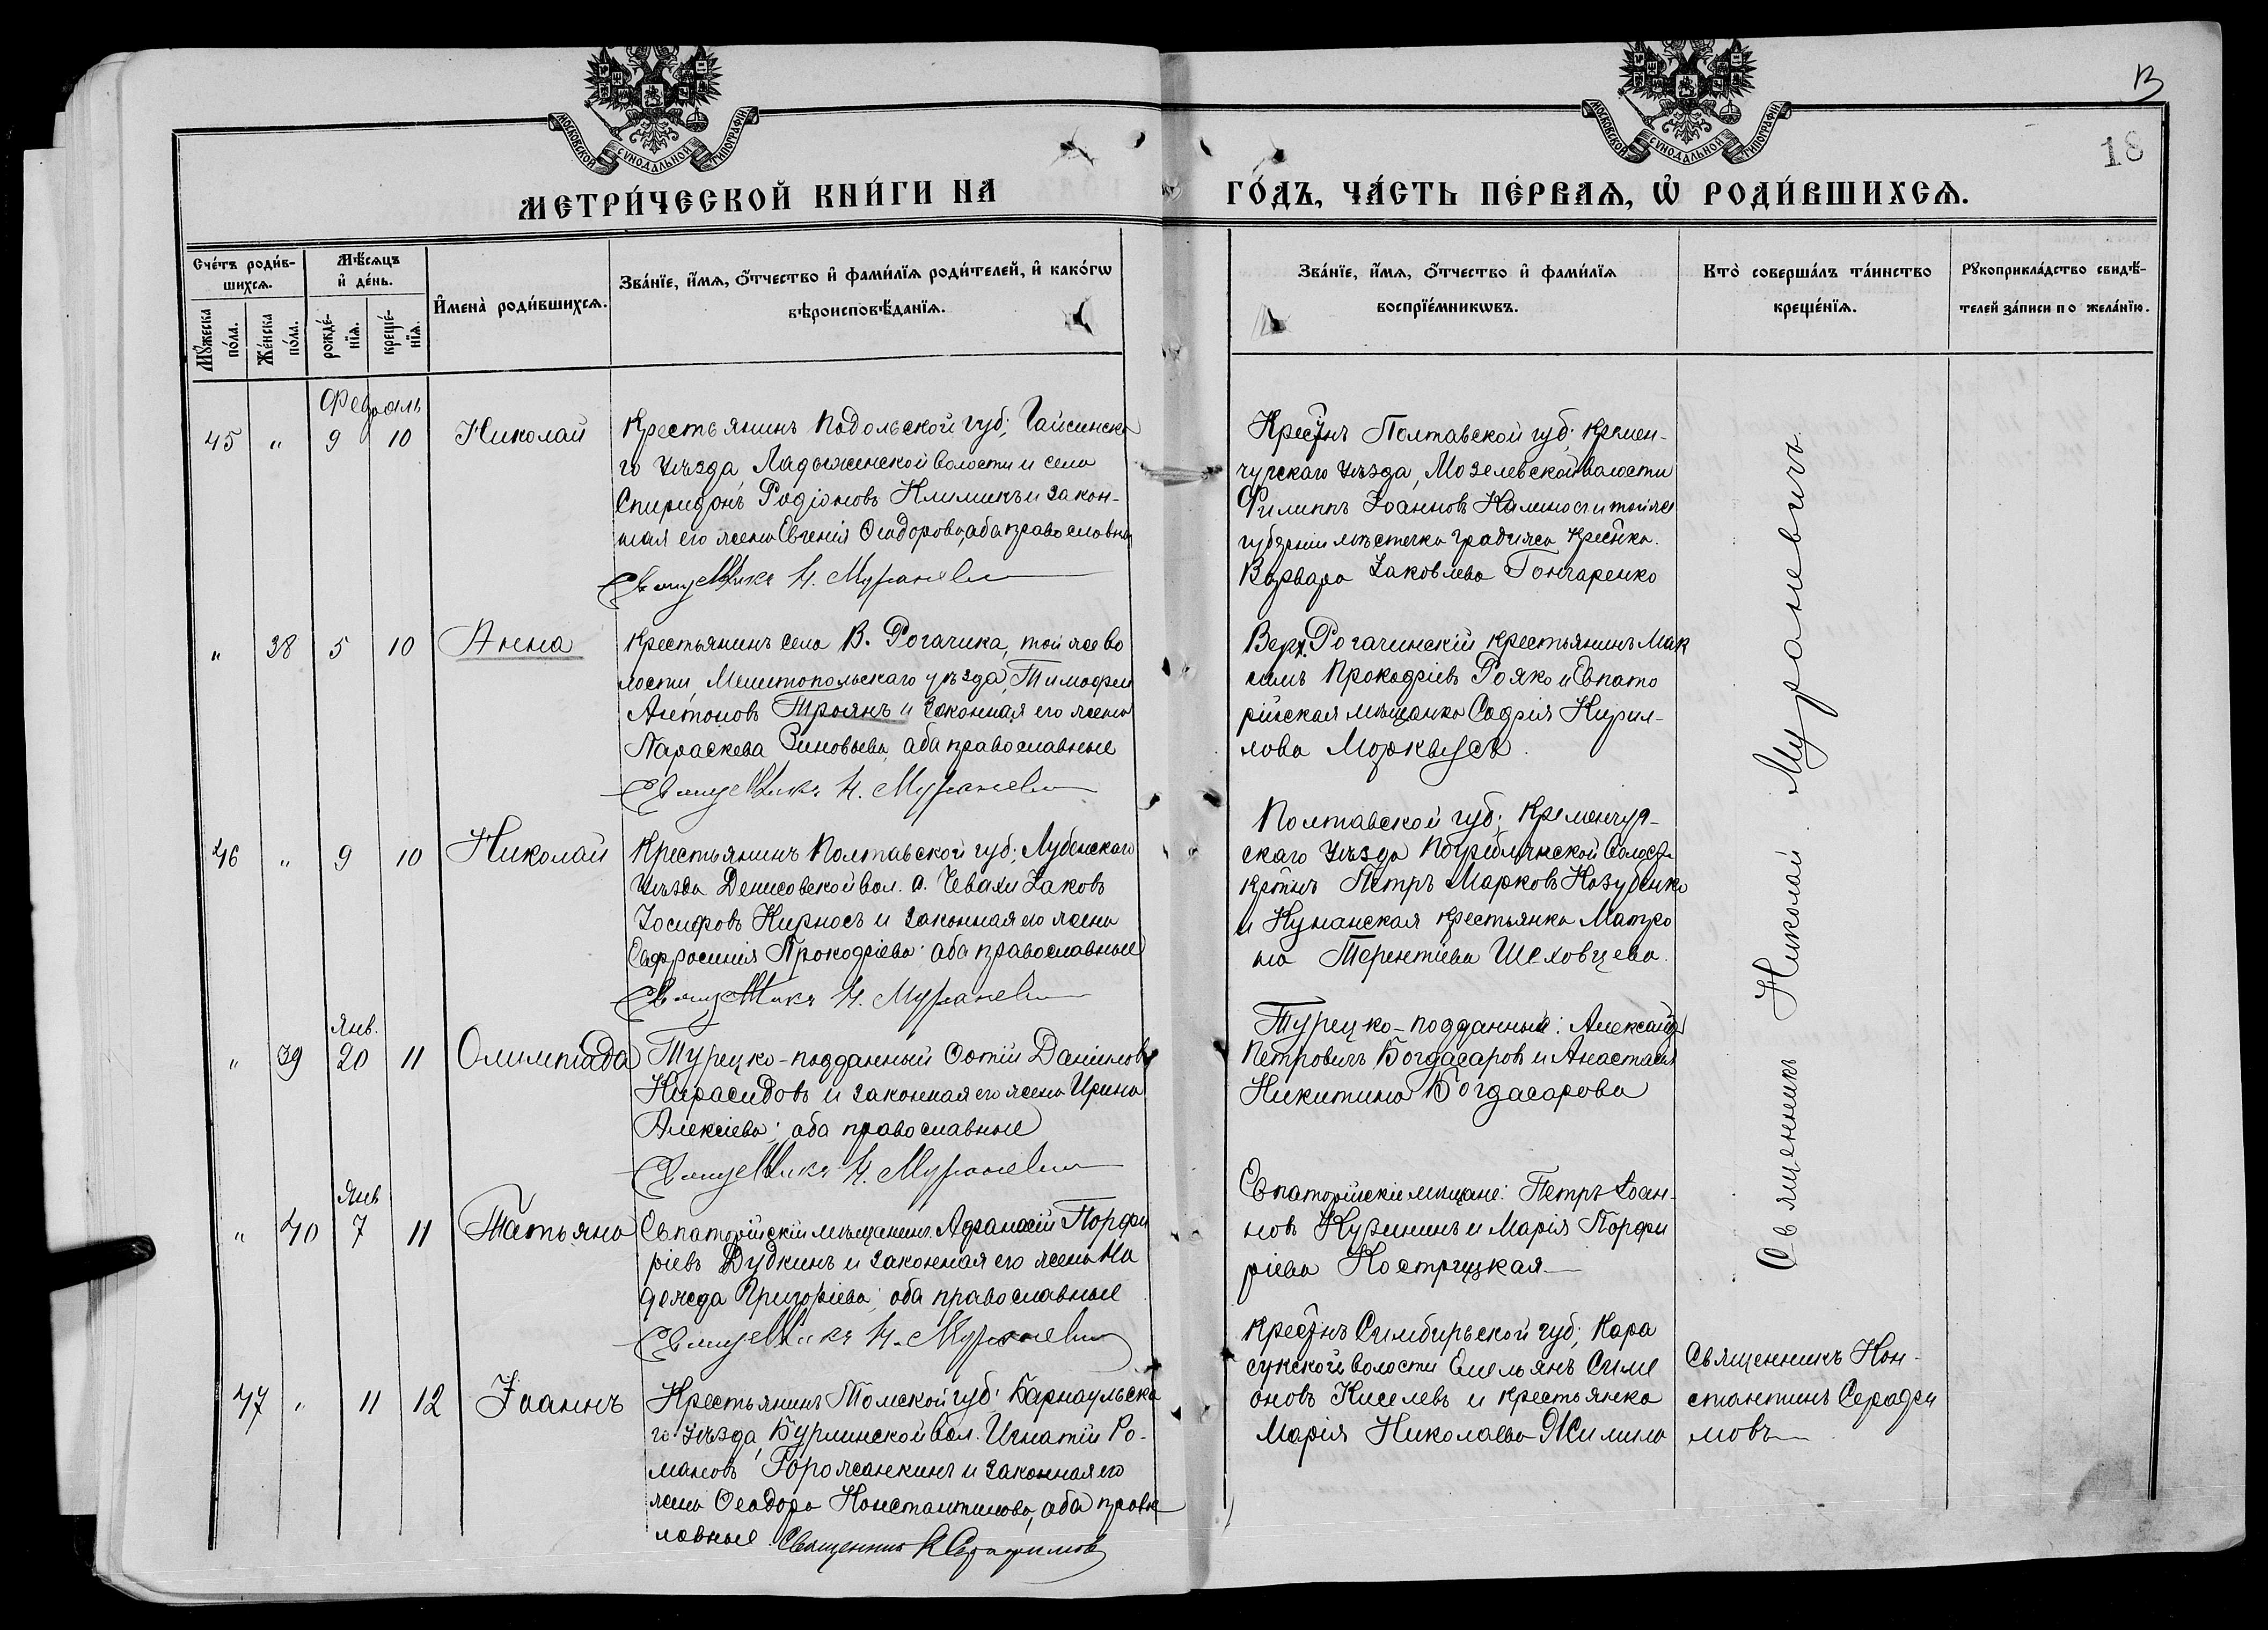 В
18
МОСКОВСКОЙ СѴНОДАЛЬНОЙ ТИПОГРАФІИ
МОСКОВСКОЙ СѴНОДАЛЬНОЙ ТИПОГРАФІИ
МЕТРИ́ЧЕСКОЙ КНИ́ГИ НА
ГО́ДЪ, ЧА́СТЬ ПЕ́РВАѦ, Ѡ҆ РОДИ́ВШИХСѦ.
Сче́тъ роди́в-
шихсѧ.
Мѣ́сѧцъ
и҆ де́нь.
И҆мена̀ роди́вшихсѧ.
Зва́нїе, и҆́мѧ, ѻ҆́тчество и҆ фами́лїѧ роди́телей, и҆ како́гѡ
вѣроисповѣ́данїѧ.
Мꙋ́жеска
по́ла.
Же́нска
по́ла.
рожде́-
нїѧ.
креще́-
нїѧ.
Зва́нїе, и҆́мѧ, ѻ҆́тчество и҆ фами́лїѧ
воспрїе́мникѡвъ.
Кто̀ соверша́лъ та́инство
креще́нїѧ.
Рꙋкоприкла́дство свидѣ́-
телей за́писи по жела́нїю.
Февраль
45 " 9 10 Николай
Крестьянинъ Подольской губ; Гайсинска
го уѣзда, Ладыженской волости и села
Спиридонъ Родіоновъ Климикъ и закон-
ная его жена Евгенія Ѳеодорова, оба православны
Священникъ Н. Мураневи
Крестнъ Полтавской губ; Кремен-
чугскаго уѣзда, Мозелевской волости
Филиппъ Іоанновъ и той же
губерніи мѣстечка Градижа крестнка
Варвара Іаковлева Гончаренко
" 38 5 10 Анна
Крестьянинъ села В. Рогачика, той же во
лости, Мелитопольскаго уѣзда, Тимофей
Антоновъ Троянъ и законная его жена
Параскева Зиновьева, оба православные
Священникъ Н. Мураневи
Верх. Рогачинскій крестьянинъ Мак
симъ Прокофіевъ Рояко и Евпато
рійская мѣщанка Софія Кирил-
лова
46 " 9 10 Николай
Крестьянинъ Полтавской губ; Лубенскаго
уѣзда Денисовской вол. с. Чевахи Іаковъ
Іосифовъ Кирносъ и законная его жена
Евфросинія Прокофіева: оба православные
Священникъ Н. Мураневи
Полтавской губ; Кременчуг-
скаго уѣзда волости
Крстнъ Петръ Марковъ Козубенко
и Куманская крестьянка Матро
на Терентіева Шеховцева.
Янв.
" 39 20 11 Олимпіада
Турецко-подданный Фотій Даніиловъ
Карасидовъ и законная его жена Ирина
Алексіева; оба православные
Священникъ Н. Мураневи
Турецко-подданные: Александръ
Петровичъ Богдасаровъ и Анастасія
Никитина Богдасарова
Янв
" 40 7 11 Татьяна
Евпаторійскій мѣщанинъ Афанасій Порфи
ріевъ Дудкинъ и законная его жена На
дежда Григоріева; оба православные
Священникъ Н. Мураневи
Евпаторійскіе мѣщане: Петръ Іоан-
новъ Кузминъ и Марія Порфи
ріева Кострицкая
47 " 11 12 Іоаннъ
Крестьянинъ Томской губ; Барнаульска
го уѣзда, Бурлинской вол. Игнатій Ро-
мановъ Горожанкинъ и законная его
жена Ѳеодора Константинова, оба правос
лавные. Священникъ К Серафимовъ
Крестнъ Симбирьской губ; Кара
сукской волости Емельянъ Симе
оновъ Киселевъ и крестьянка
Марія Николаева Жилина
Священникъ Николай Мураневичъ.
Священникъ Кон-
стантинъ Серафи
мовъ